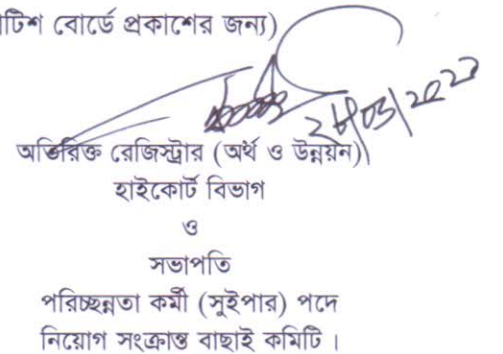 টিশ বোর্ডে প্রকাশের জন্য)
অতিরিক্ত রেজিস্ট্রার (অর্থ ও উন্নয়ন)
হাইকোর্ট বিভাগ
ও
সভাপতি
পরিচ্ছন্নতা কর্মী (সুইপার) পদে
নিয়োগ সংক্রান্ত বাছাই কমিটি ।